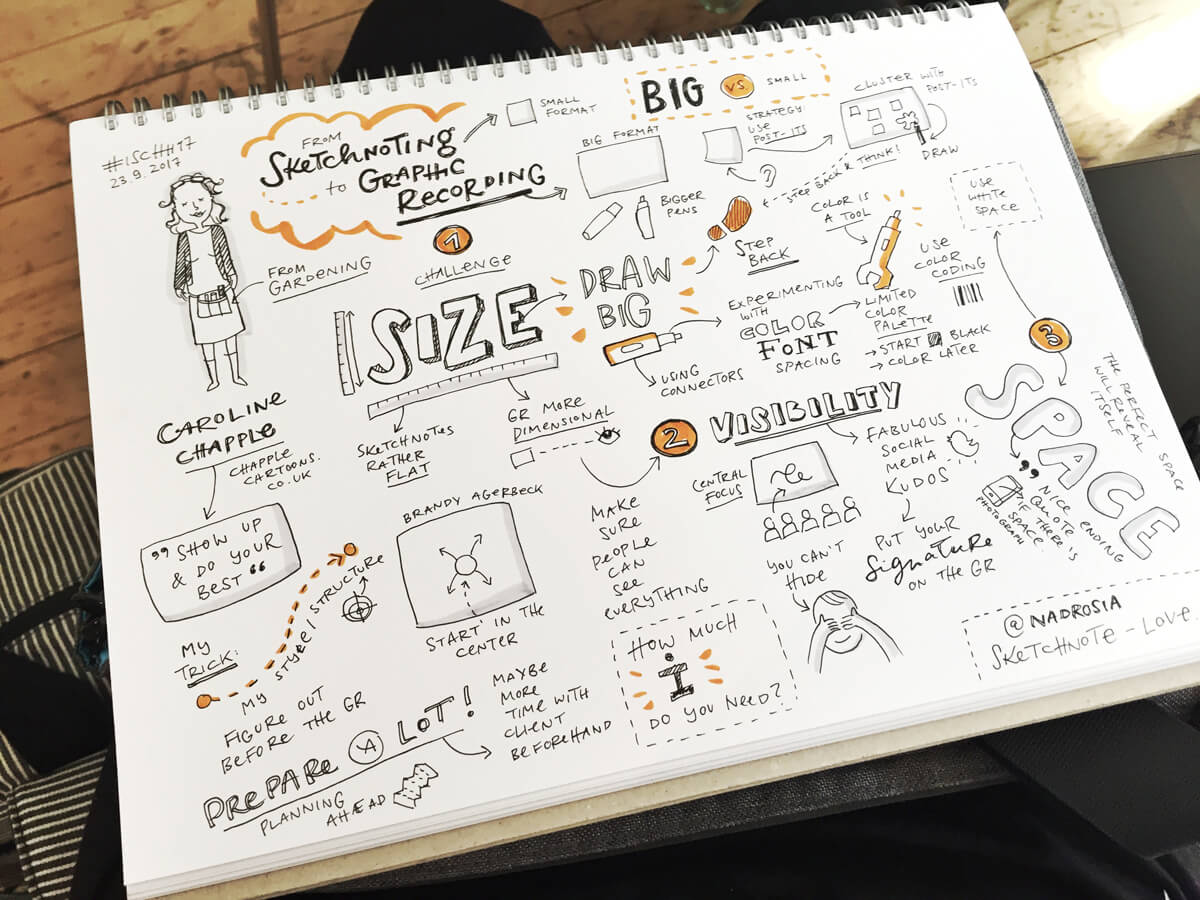 #ISCHH17
23.9.2017
FROM
SKETCHNOTING
to GRAPHIC
RECORDING
SMALL
FORMAT
BIG VS. SMALL
BIG FORMAT
BIGGER
PENS
STRATEGY:
USE
POST-ITS
CLUSTER WITH
POST-ITS
DRAW
STEP BACK & THINK!
?
FROM
GARDENING
CAROLINE
CHAPPLE
CHAPPLE
CARTOONS.
CO.UK
„ SHOW UP
& DO YOUR
BEST “
1
CHALLENGE
SIZE
SKETCHNOTES
RATHER
FLAT
GR MORE
DIMENSIONAL
DRAW
BIG
STEP
BACK
USING
CONNECTORS
EXPERIMENTING
WITH
COLOR
FONT
SPACING
COLOR IS
A TOOL
LIMITED
COLOR
PALETTE
→ START BLACK
→ COLOR LATER
USE
COLOR
CODING
USE
WHITE
SPACE
2
VISIBILITY
MAKE
SURE
PEOPLE
CAN
SEE
EVERYTHING
CENTRAL
FOCUS
YOU CAN'T
HIDE
FABULOUS
SOCIAL
MEDIA
KUDOS
PUT YOUR
SIGNATURE
ON THE GR
3
SPACE
THE PERFECT SPACE
WILL REVEAL
ITSELF
„ NICE ENDING
QUOTE
IF THERE'S
SPACE.
PHOTOGRAPH
BRANDY AGERBECK
START IN THE
CENTER
MY
TRICK:
MY STYLE / STRUCTURE
FIGURE OUT
BEFORE THE GR
PREPARE A LOT!
PLANNING
AHEAD
MAYBE
MORE
TIME WITH
CLIENT
BEFOREHAND
HOW MUCH
I
DO YOU NEED?
@NADROSIA
SKETCHNOTE-LOVE.